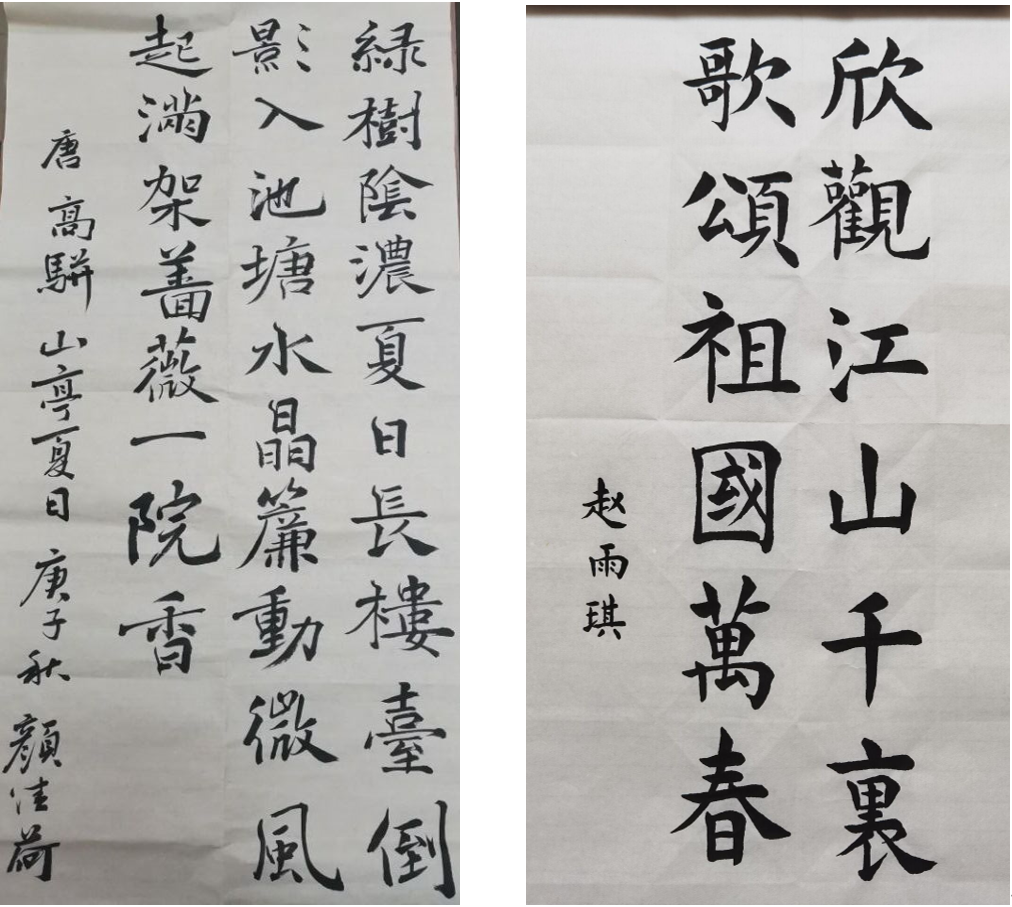 緑樹陰濃夏日長樓臺倒
影入池塘水晶簾動微風
起滿架薔薇一院香
唐高駢山亭夏日庚子秋顏佳荷
欣觀江山千裏
歌頌祖國萬春
赵雨琪